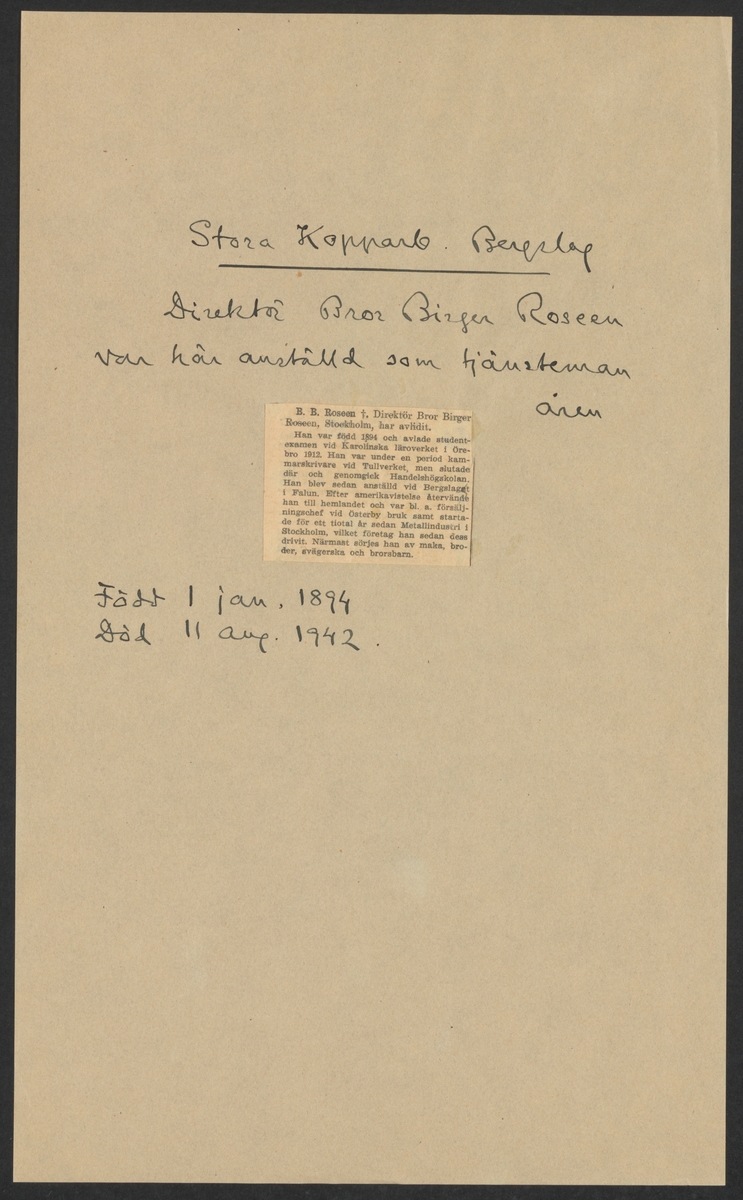 Stora Kopparb. Bergslag
Direktör Bror Birger Roseen
var här anställd som tjänsteman
åren
B. B. Roseen †. Direktör Bror Birger
Roseen, Stockholm, har avlidit.
Han var född 1894 och avlade student-
examen vid Karolinska läroverket i Öre-
bro 1912. Han var under en period kam-
marskrivare vid Tullverket, men slutade
där och genomgick Handelshögskolan.
Han blev sedan anställd vid Bergslaget
i Falun. Efter amerikavistelse återvände
han till hemlandet och var bl. a. försälj-
ningschef vid Österby bruk samt starta-
de för ett tiotal år sedan Metallindustri i
Stockholm, vilket företag han sedan dess
drivit. Närmast sörjes han av maka, bro-
der, svägerska och brorsbarn.
Född 1 jan. 1894
Död 11 aug. 1942.